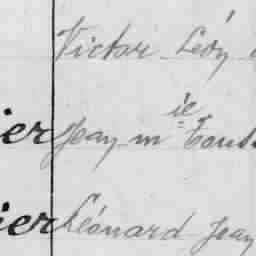 Victor Léon
ier Jean m ie Tous
ier Léonard Jean